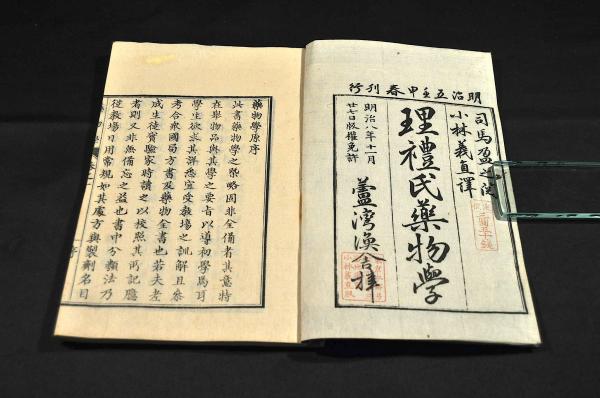 明治五壬申春刊行
司馬盈之閲
小林義直譯
理禮氏藥物學
明治八年十一月
廿七日版權免許
藥物學原序
此書藥物學之槩略固非全備者其意特
在舉物品與其學之要旨以導初學焉耳
學生欲求其詳悉宜受教場之訓解且參
考合衆國局方書及藥物全書也若夫老
成生徒實驗家時讀之以校照其所記臆
者則又非無備忘之益也書中分類法乃
從教場日用常規如其處方與製劑名目